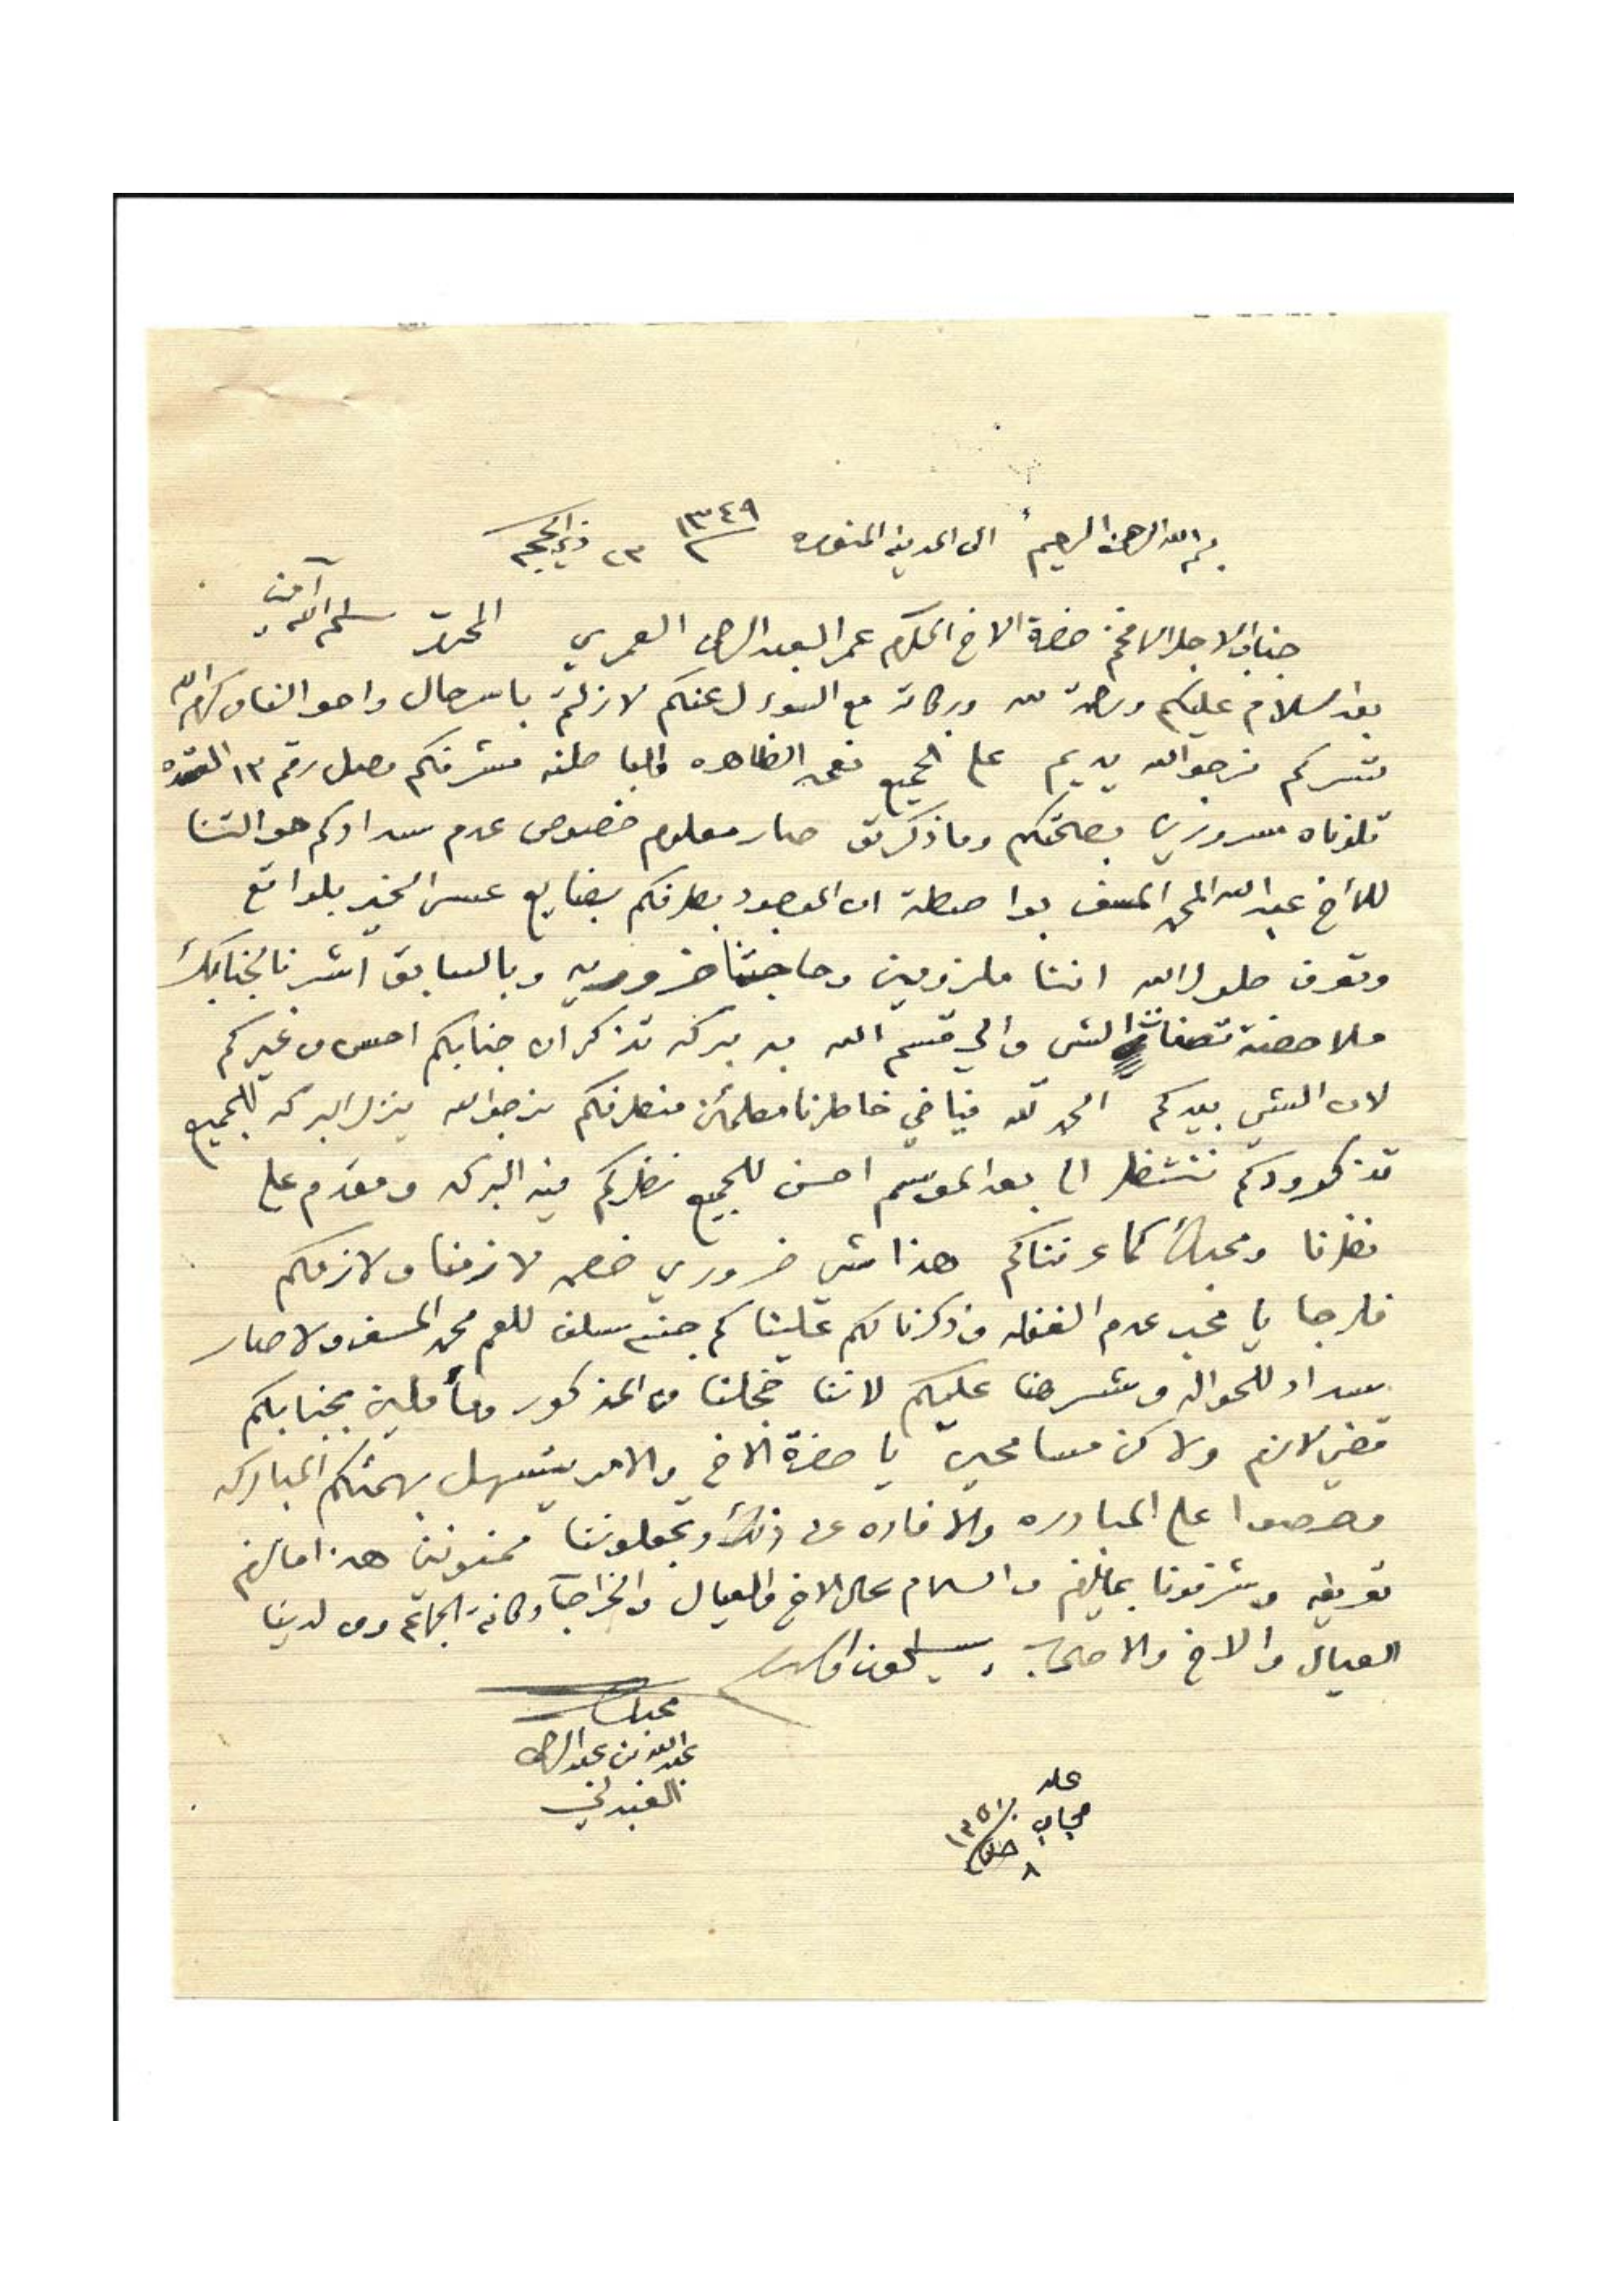 بسم الله الرحمن الرحيم الى المدينة المنوره ١٣٤٩ ٢٣ ذي الحجه
جناب الاجل الافخم حضرة الاخ المكرم عمر العبدالرحمن العمري المحترم سلمه الله آمين
بعد السلام عليكم ورحمة الله وبركاته مع السوءل عنكم لازلتم باسر حال واحوالنا من كرم الله
تسركم نرجوالله يديم على الجميع نعمه الظاهره والباطنه مشرفكم وصل رقم ١٣ القعده
تلوناه مسرورين بصحتكم وما ذكرتو صار معلوم خصوص عدم سدادكم حوالتنا
للأخ عبدالله المحمد المسند بواصطة ان الموجود بطرفكم بضايع عسى الخير بلواقع
وتعرف طول الله اننا ملزومين وحاجتنا ضروريه وبالسابق اشرنا لجنابك
ملاحضة الشي والي قسم الله به بركه تذكر ان جنابكم احسن من غيركم
لان الشي بيدكم الحمد لله فياخي خاطرنا مطمئن منطرفكم نرجوالله ينزل البركه للجميع
تذكرودكم ننتضر الى بعد الموسم احسن للجميع نضركم فيه البركه ومقدم على
نضرنا ومحبك كما عرفناكم هذا شي ضروري خص لازمنا ولازمكم
فلرجا يا محب عدم الغفله وذكرنا لكم جنيه سلف للعم محمد المسند ولا صار
سداد للحواله وشرهنا عليكم لاننا خجلنا من المذكور ومأملين بجنابكم
قضى لازم ولاكن مسامحين يا حضرة الاخ والامر يتسهل بهمتكم المباركه
وحرصوا على المبادره والافاده عن ذلك وتجعلوننا ممنونين هذا مالزم
تعريفه وشرفونا بمايلزم والسلام على الاخ والعيال وكافة الجماعه ومن لدينا
العيال والاخ والاصحاب يسلمون والسلام
محبك
عبدالله بن عبدالرحمن
١٣٥٠
٨